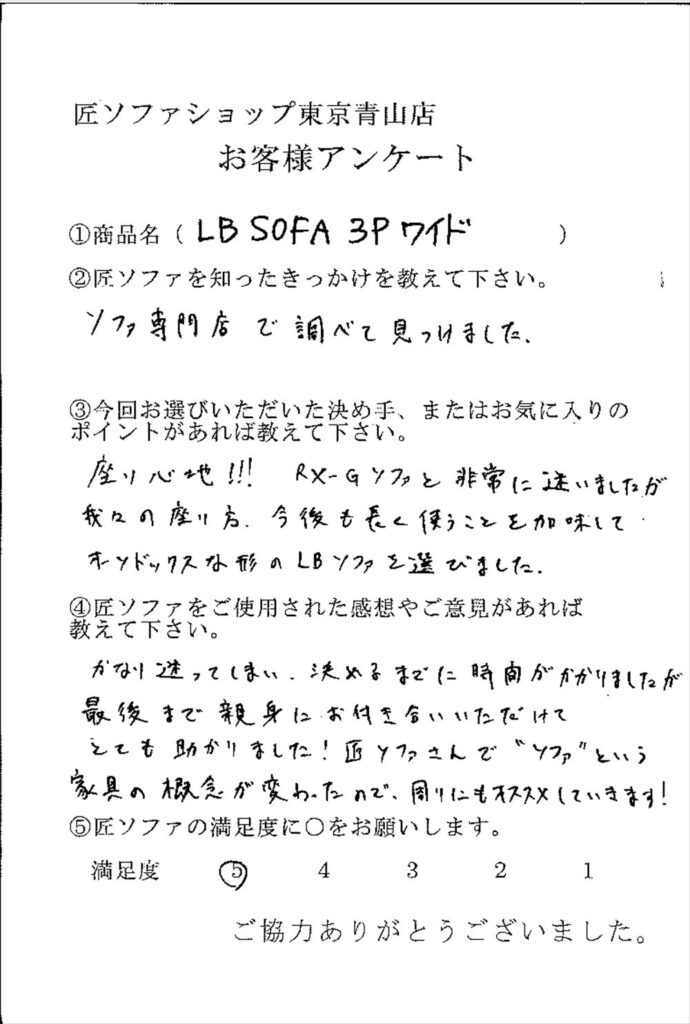 匠ソファショップ東京青山店
お客様アンケート
①商品名（ LB SOFA 3P ワイド ）
②匠ソファを知ったきっかけを教えて下さい。
ソファ専門店で調べて見つけました.
③今回お選びいただいた決め手、またはお気に入りの
ポイントがあれば教えて下さい。
座り心地!!! RX-Gソファと非常に迷いましたが
我々の座り方、今後も長く使うことを加味して
オーソドックスな形のLBソファを選びました.
④匠ソファをご使用された感想やご意見があれば
教えて下さい。
かなり迷ってしまい、決めるまでに時間がかかりましたが
最後まで親身にお付き合いいただけて
とても助かりました!匠ソファさんで"ソファ"という
家具の概念が変わったので、周りにもオススメしていきます!
⑤匠ソファの満足度に○をお願いします。
満足度 5 4 3 2 1
ご協力ありがとうございました。